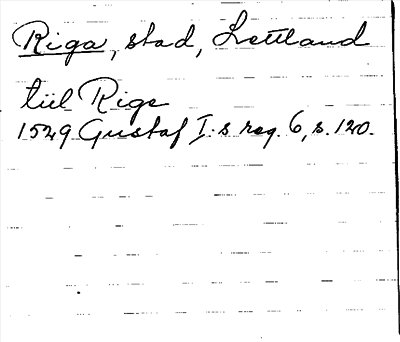 Riga, stad, Lettland
tiil Rige
1529 Gustaf I:s reg. 6, s. 120.